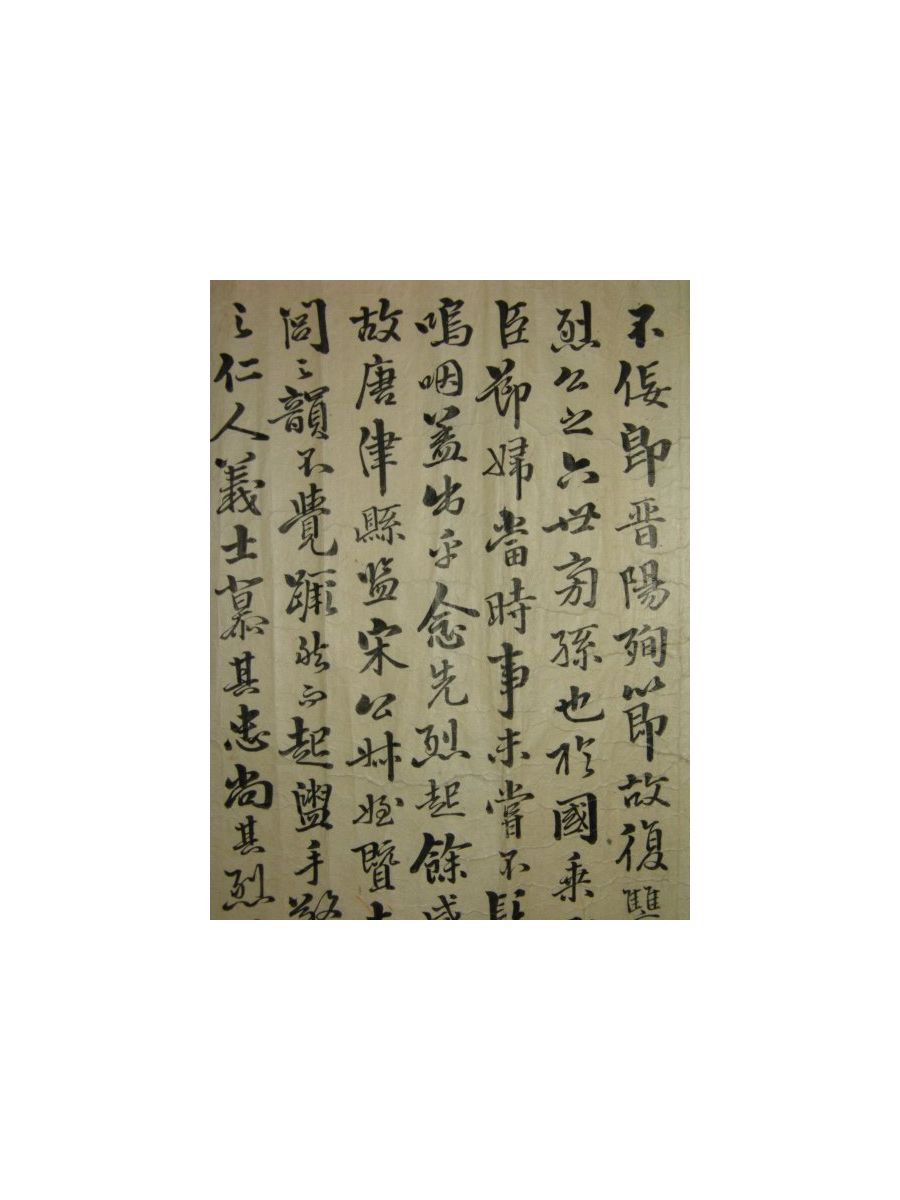 不佞即晉陽殉節故復雙
烈公之六世旁孫也於國乘
臣節婦當時事未嘗不
嗚咽蓋出乎念先烈起餘感
故唐津縣監宋公姊姪覽
閭之韻不覺蹶然而起盥手敬
之仁人義士慕其忠尚其烈